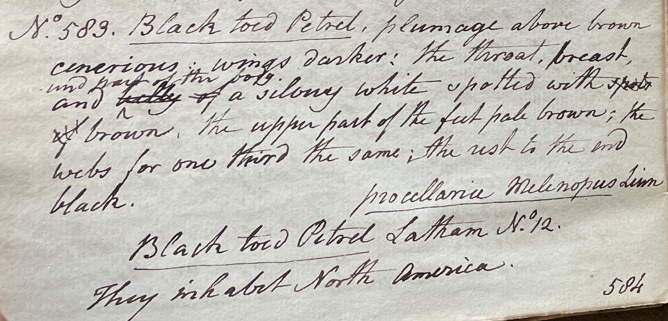 No. 583. Black toed Petrel, plumage above brown
cenerious; wings darker: the throat, breast,
und part of the body.
and belly of a silvery white spotted with spots
of brown. the upper part of the feet pale brown; the
webs for one third the same; the rest to the end
black.
procellaria Melenopus Linn
Black toed Petrel Latham No. 12.
They inhabit North America.
584